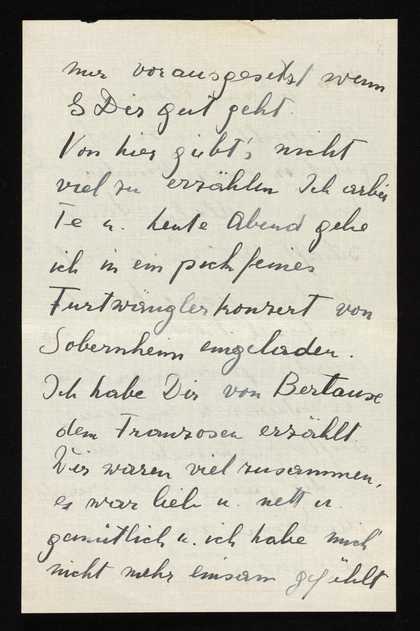 nur vorausgesetzt wenn
s Dir gut geht.
Von hier gibt's nicht
viel zu erzählen Ich arbei
te u. heute Abend gehe
ich in ein pickfeines
Furtwänglerkonzert von
Sobernheim eingeladen.
Ich habe Dir von Bertaux
dem Franzosen erzählt
Wir waren viel zusammen,
es war lieb u. nett u.
gemütlich u. ich habe mich
nicht mehr einsam gefühlt